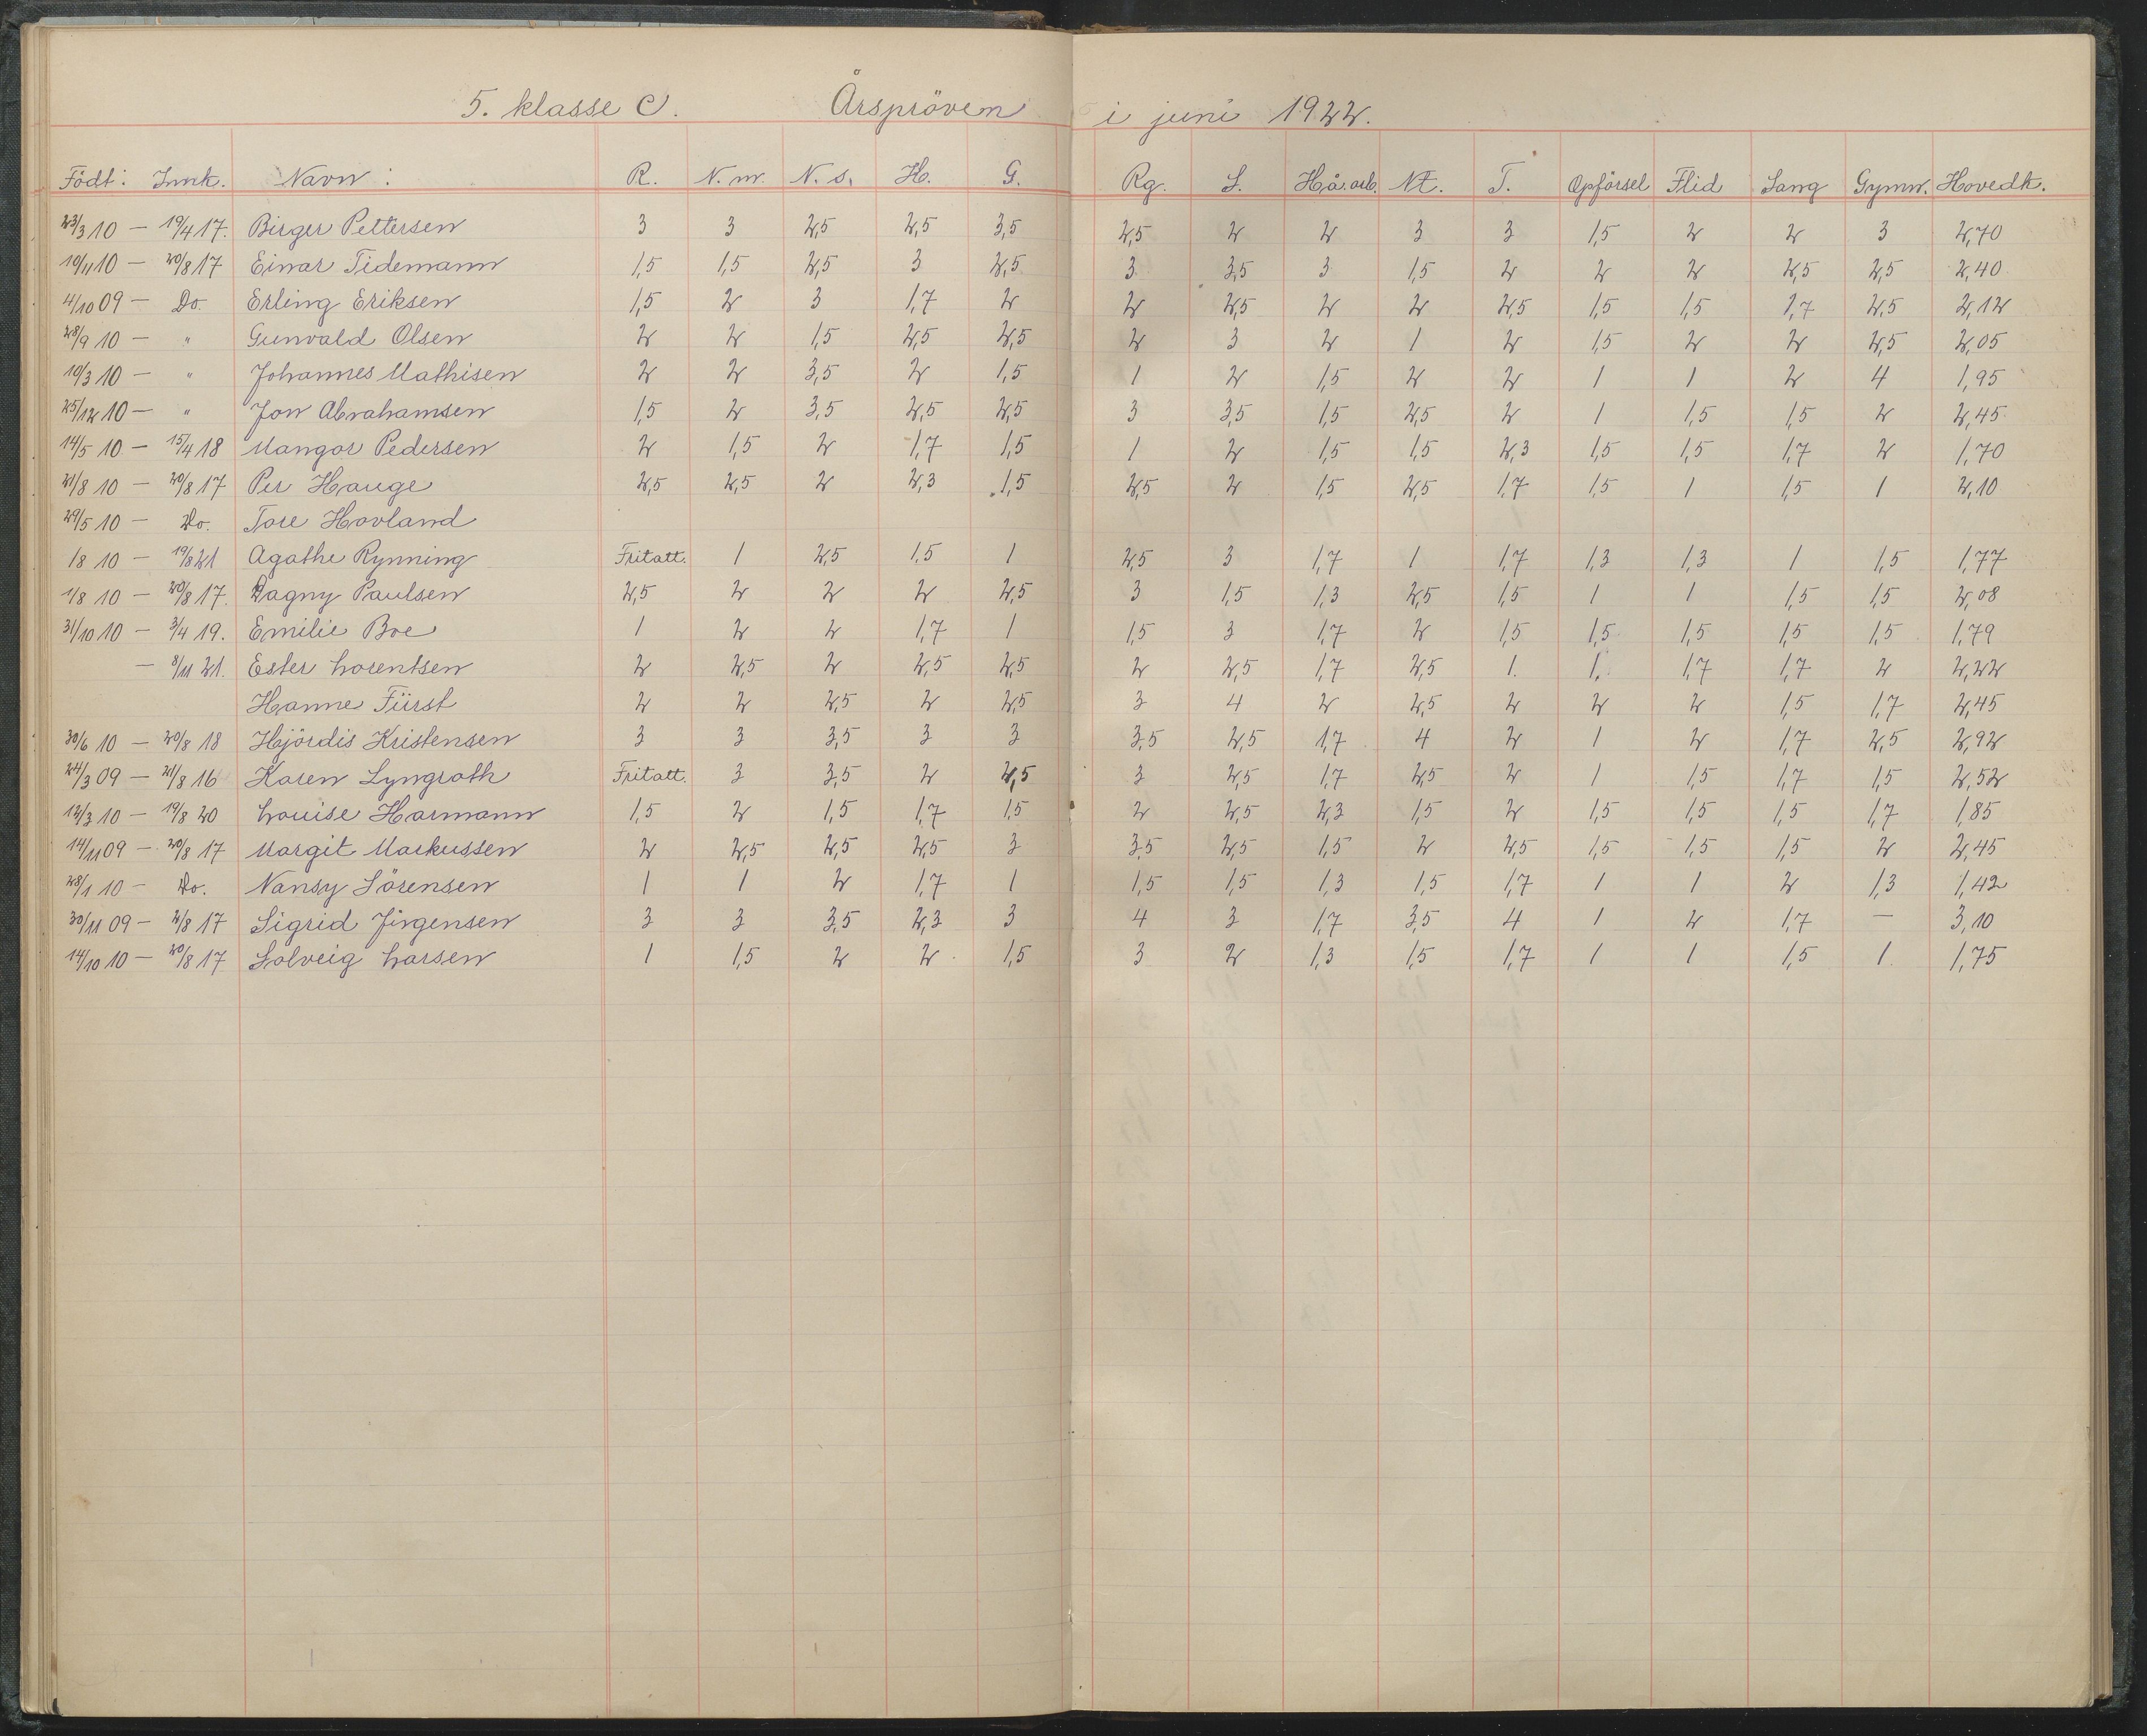 5. klasse C. Årspröven i juni 1922.
Födt: Innk. Navn: R. N.m. N.s. H. G. Rg. S. Hå.arb. Nt. T. Opförsel Flid Sang Gymn. Hovedk.
23/3 10 — 19/4 17. Birger Pettersen 3 3 2,5 2,5 3,5 2,5 2 2 3 3 1,5 2 2 3 2,70
10/11 10 — 20/8 17 Einar Tidemann 1,5 1,5 2,5 3 2,5 3 3,5 3 1,5 2 2 2 2,5 2,5 2,40
4/10 09 — Do. Erling Eriksen 1,5 2 3 1,7 2 2 2,5 2 2 2,5 1,5 1,5 1,7 2,5 2,12
28/9 10 — " Gunvald Olsen 2 2 1,5 2,5 2,5 2 3 2 1 2 1,5 2 2 2,5 2,05
10/3 10 — " Johannes Mathisen 2 2 3,5 2 1,5 1 2 1,5 2 2 1 1 2 4 1,95
25/12 10 — " Jon Abrahamsen 1,5 2 3,5 2,5 2,5 3 3,5 1,5 2,5 2 1 1,5 1,5 2 2,45
14/5 10 — 15/4 18 Mangor Pedersen 2 1,5 2 1,7 1,5 1 2 1,5 1,5 2,3 1,5 1,5 1,7 2 1,70
21/8 10 — 20/8 17 Per Hauge 2,5 2,5 2 2,3 1,5 2,5 2 1,5 2,5 1,7 1,5 1 1,5 1 2,10
29/5 10 — Do. Tore Hovland
1/8 10 — 19/8 21 Agathe Rynning Fritatt. 1 2,5 1,5 1 2,5 3 1,7 1 1,7 1,3 1,3 1 1,5 1,77
1/8 10 — 20/8 17. Dagny Paulsen 2,5 2 2 2 2,5 3 1,5 1,3 2,5 1,5 1 1 1,5 1,5 2,08
31/10 10 — 3/4 19. Emilie Boe 1 2 2 1,7 1 1,5 3 1,7 2 1,5 1,5 1,5 1,5 1,5 1,79
— 8/11 21. Ester Lorentsen 2 2,5 2 2,5 2,5 2 2,5 1,7 2,5 1. 1. 1,7 1,7 2 2,22
Hanne Fürst 2 2 2,5 2 2,5 3 4 2 2,5 2 2 2 1,5 1,7 2,45
30/6 10 — 20/8 18 Hjördis Kristensen 3 3 3,5 3 3 3,5 2,5 1,7 4 2 1 2 1,7 2,5 2,92
24/3 09 — 21/8 16 Karen Lyngroth Fritatt. 3 3,5 2 2,5 3 2,5 1,7 2,5 2 1 1,5 1,7 1,5 2,52
12/3 10 — 19/8 20 Louise Harmann 1,5 2 1,5 1,7 1,5 2 2,5 2,3 1,5 2 1,5 1,5 1,5 1,7 1,85
14/11 09 — 20/8 17 Margit Markussen 2 2,5 2,5 2,5 3 3,5 2,5 1,5 2 2,5 1,5 1,5 1,5 2 2,45
28/1 10 — Do. Nansy Sörensen 1 1 2 1,7 1 1,5 1,5 1,3 1,5 1,7 1 1 2 1,3 1,42
30/11 09 — 2/8 17 Sigrid Jirgensen 3 3 3,5 2,3 3 4 3 1,7 3,5 4 1 2 1,7 — 3,10
14/10 10 — 20/8 17 Solveig Larsen 1 1,5 2 2 1,5 3 2 1,3 1,5 1,7 1 1 1,5 1 1,75